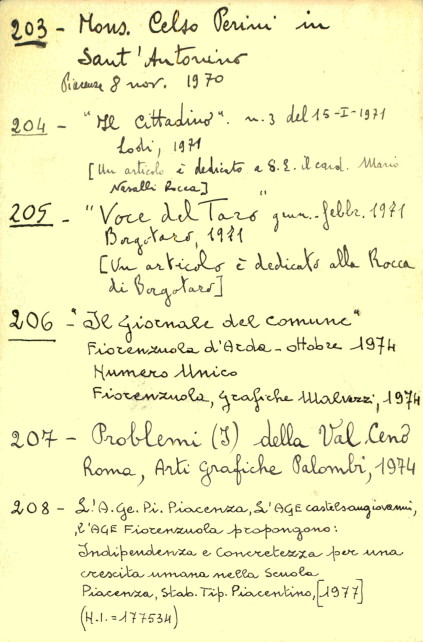 203 - Mons. Celso Perini in
Sant'Antonino
Piacenza 8 nov. 1970
204 - "Il Cittadino". n. 3 del 15-I-1971
Lodi, 1971
[Un articolo è dedicato a S.E. il card. Mario
Nasalli Rocca]
205 - "Voce del Taro" genn.-febbr. 1971
Borgotaro, 1971
[Un articolo è dedicato alla Rocca
di Borgotaro]
206 - "Il Giornale del comune"
Fiorenzuola d'Arda - ottobre 1974
Numero Unico
Fiorenzuola, Grafiche Malvezzi, 1974
207 - Problemi (I) della Val Ceno
Roma, Arti Grafiche Palombi, 1974
208 - L'A.Ge.Pi. Piacenza, L'AGE castelsangiovanni,
L'AGE Fiorenzuola propongono:
Indipendenza e Concretezza per una
crescita umana nella Scuola
Piacenza, Stab. Tip. Piacentino, [1977]
(N.I. = 177534)